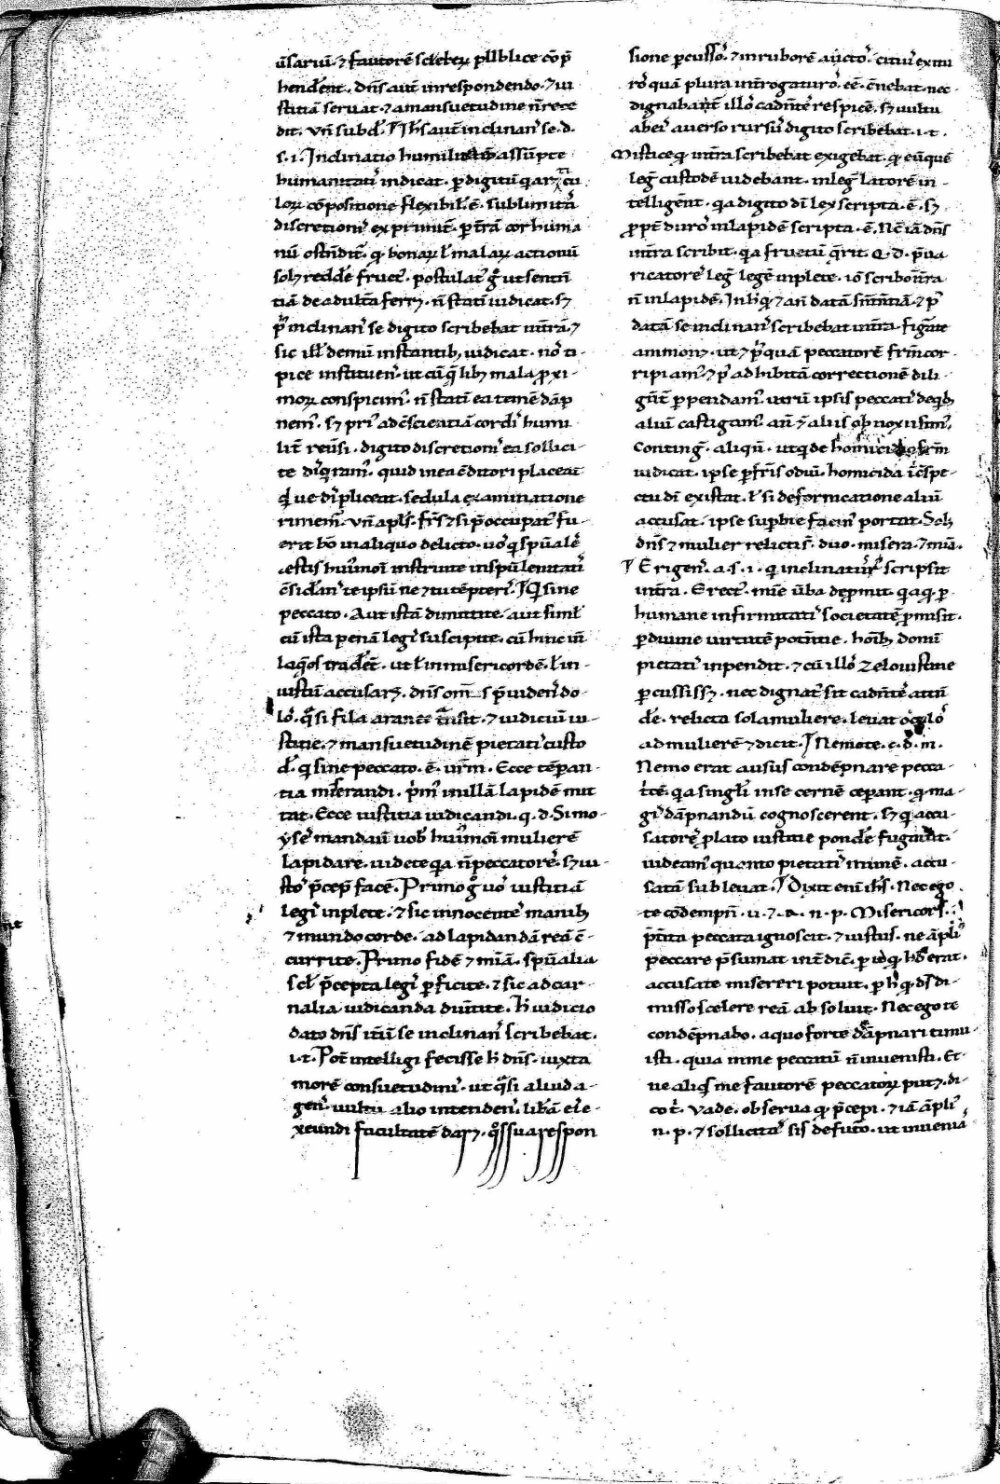 ūsariū ⁊ fautorē sceleꝝ pllblice cōp̄
hendent. dn̄s aut̄ in respondendo. ⁊ iu
stitiā seruat. ⁊ a mansuetudine n̄ rece
dit. vn̄ subd'. ¶ Ih̄s aut̄ inclinans se. d.
s. i. Inclinatio humilitatē assūpte
humanitatis indicat. ꝑ digitū q articu
loꝝ cōpositione flexibilis ē. sublimitas
discretionis exprimit̄. ꝑ t̄rā cor huma
nū ostendit̄. q bonaꝝ ł malaꝝ actionū
solꝫ reddere fructus. postulatus ḡ ut sentn̄
tiā de adult̄a ferrꝫ. n̄ statī iudicat. sꝫ
p̄us inclinans se digito scribebat in t̄rā. ⁊
sic ill' demū instantibꝫ iudicat. nos ti
pice instituens. ut cū q̄libꝫ mala proxi
moꝝ conspicimus. n̄ statī ea temē dāp
nemus. sꝫ prius ad c̄scientiā cordis humi
lit̄ reuersi. digito discretionis ea sollici
te dirigamus. quid in ea c̄ditori placeat
q'ue displiceat. sedula examinatione
rimemus. vn̄ apl's. frs̄ ⁊ si p̄occupatus fu
erit hō in aliquo delicto. uos q spūales
estis hui'moī instruite in spū lenitatis
c̄siderans te ipsū ne ⁊ tu tēpteris. ¶ Q sine
peccato. Aut istā dimittite. aut simul
cū ista penā legis suscipite. cū hinc in̄
laqueos traderet̄. ut ł inmisericordē. ł in
iustū accusarꝫ. dn̄s om̄s p̄uidens do
los. q̄si fila aranee t̄nsit. ⁊ iudiciū iu
stitie. ⁊ mansuetudinē pietatis custo
d'. q sine peccato. ē. ur̄m. Ecce tēperan
tia miserandi. p̄mus in illā lapidē mit
tat. Ecce iustitia iudicandi. q. d. Si mo
yses mandauit uobis hui'moī mulierē
lapidare. uidete qa n̄ peccatores. sꝫ iu
stos p̄cepit facē. Primo g° uos iustitiā
legis inplete. ⁊ sic innocentes manibꝫ
⁊ mundo corde. ad lapidandā reā c̄
currite. Primo fidē ⁊ miam̄. spūalia
scl' p̄cepta legis ꝑficite. ⁊ sic ad car
nalia iudicanda uenite. h° iudicio
dato dn̄s itūm se inclinans scribebat.
i. t. Pot̄ intelligi fecisse h° dn̄s. iuxta
morē consuetudinis. ut q̄si aliud a
gens. uultu alio intendens. libam̄ ele
xeundi facultatē darꝫ. q̄s sua respon
sione ꝑcussos. ⁊ in ruborē auctos. citius exitu
ros quā plura int̄rogaturos. eē. c̄nebat. nec
dignabat̄ illos cadentes respicē. sꝫ uultu
abeis auerso rursū digito scribebat. i. t.
Misticeq in t̄rā scribebat exigebat. q eū que
legis custodē uidebant. in legis latorē in
telligent. qa digito dī lex scripta. ē. sꝫ
propt̄ duros in lapidē scripta. ē. Nc̄ iā dn̄s
in t̄rā scribit. qa fructū q̄rit. Q. d. p̄ua
ricatores legis legē inplete. iō scribo in t̄ra
n̄ in lapidē. In hꝫ q ⁊ an̄ datā sn̄tentiā. ⁊ p°
datā se inclinans scribebat in t̄ra. figurate
ammonꝫ. ut ⁊ p̄ quā peccatorē frm̄ cor
ripiamus. ⁊ p° adhibitā correctionē dili
gent̄ perpendamus. utrū ipsis peccatis deqibꝫ
aliū castigamus. an̄ ⁊ aliis obnoxii simus.
Contingit. aliqn̄. ut q de homicidio frm̄
iudicat. ipse ꝑ fris odiū. homicida ī c̄spe
ctu dī existat. ł si de fornicatione aliū
accusat. ipse supbie facinus portat. Solꝫ
dn̄s ⁊ mulier relictis. duo. misera. ⁊ mia.
¶ Erigens. a. s. i. q inclinatus scripsit
in t̄ra. Erectus. mie ūba deprmit. qa q ꝑ
humane infirmitatis societatē ꝓmisit.
ꝑ diuine uirtutē potentie. hoib̄ domi
pietatis inpendit. ⁊ cū illos zelo iustitie
ꝑcussissꝫ. nec dignatus sit cadentes atten
de. relicta sola muliere. leuat oculos
ad mulierē ⁊ dicit. ¶ Nemo te. c. d. m.
Nemo erat ausus condēpnare pecca
t̄cē. qa singli in se cernē ceperant. q ma
gis dāpnandū cognoscerent. sꝫ q accu
satores prolato iustitie pondere fugauit.
uideamus quanto pietatis munē. accu
satā subleuat. ¶ Dixit enī ih̄s. Nec ego
te condempn̄. u. ⁊ a. n. p. Misericors.
p̄terita peccata ignoscit. ⁊ iustus. ne āplius
peccare p̄sumat int̄dic̄.
accusate misereri potuit.
misso scelere reā absoluit. Nec ego te
condēpnabo. a quo forte dāpnari timu
isti. quia in me peccatū n̄ inuenisti. Et
ne aliqs me fautorē peccatoꝝ putꝫ. di
co t'. Vade. obserua q p̄cepi. ⁊ iā āplius
n. p. ⁊ sollicitus sis de futo. ut inuenia